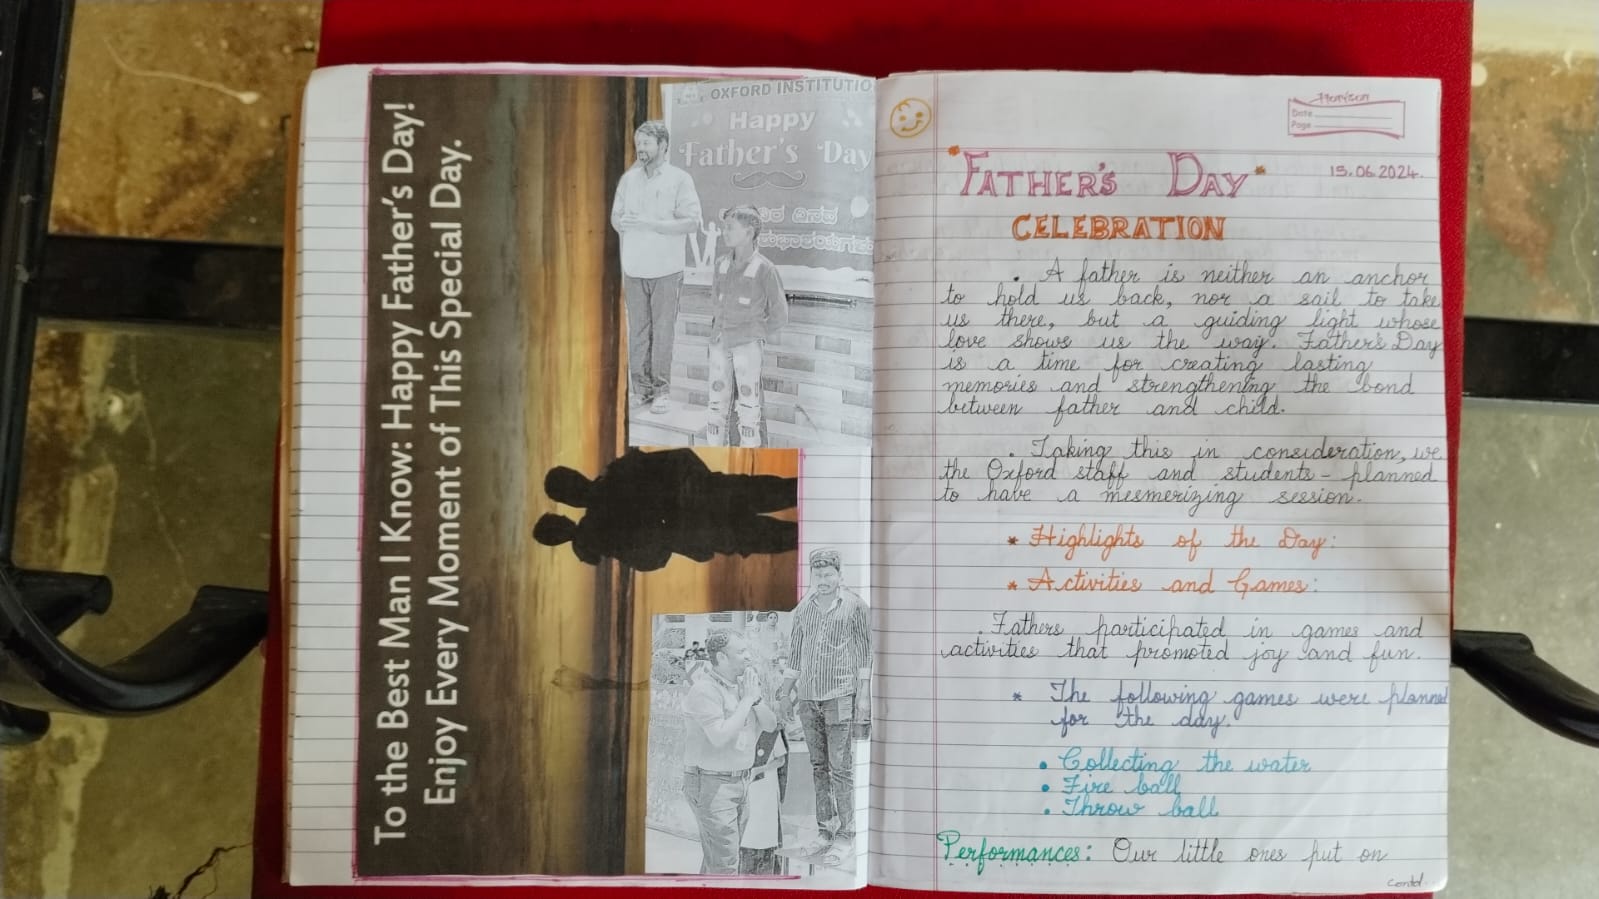 To the Best Man I Know: Happy Father's Day!
Enjoy Every Moment of This Special Day.
OXFORD INSTITUTIO
Happy
Father's Day
ದಿನದ
ಶುಭಾಶಯಗಳು
Date
Page
"FATHER'S DAY"
15.06.2024.
CELEBRATION
. A father is neither an anchor
to hold us back, nor a sail to take
us there, but a guiding light whose
love shows us the way. Father's Day
is a time for creating lasting
memories and strengthening the bond
between father and child.
. Taking this in consideration, we
the Oxford staff and students - planned
to have a mesmerizing session.
* Highlights of the Day:
* Activities and Games:
. Fathers participated in games and
activities that promoted joy and fun.
* The following games were planned
for the day.
• Collecting the water
• Fire ball
• Throw ball
Performances: Our little ones put on
contd...